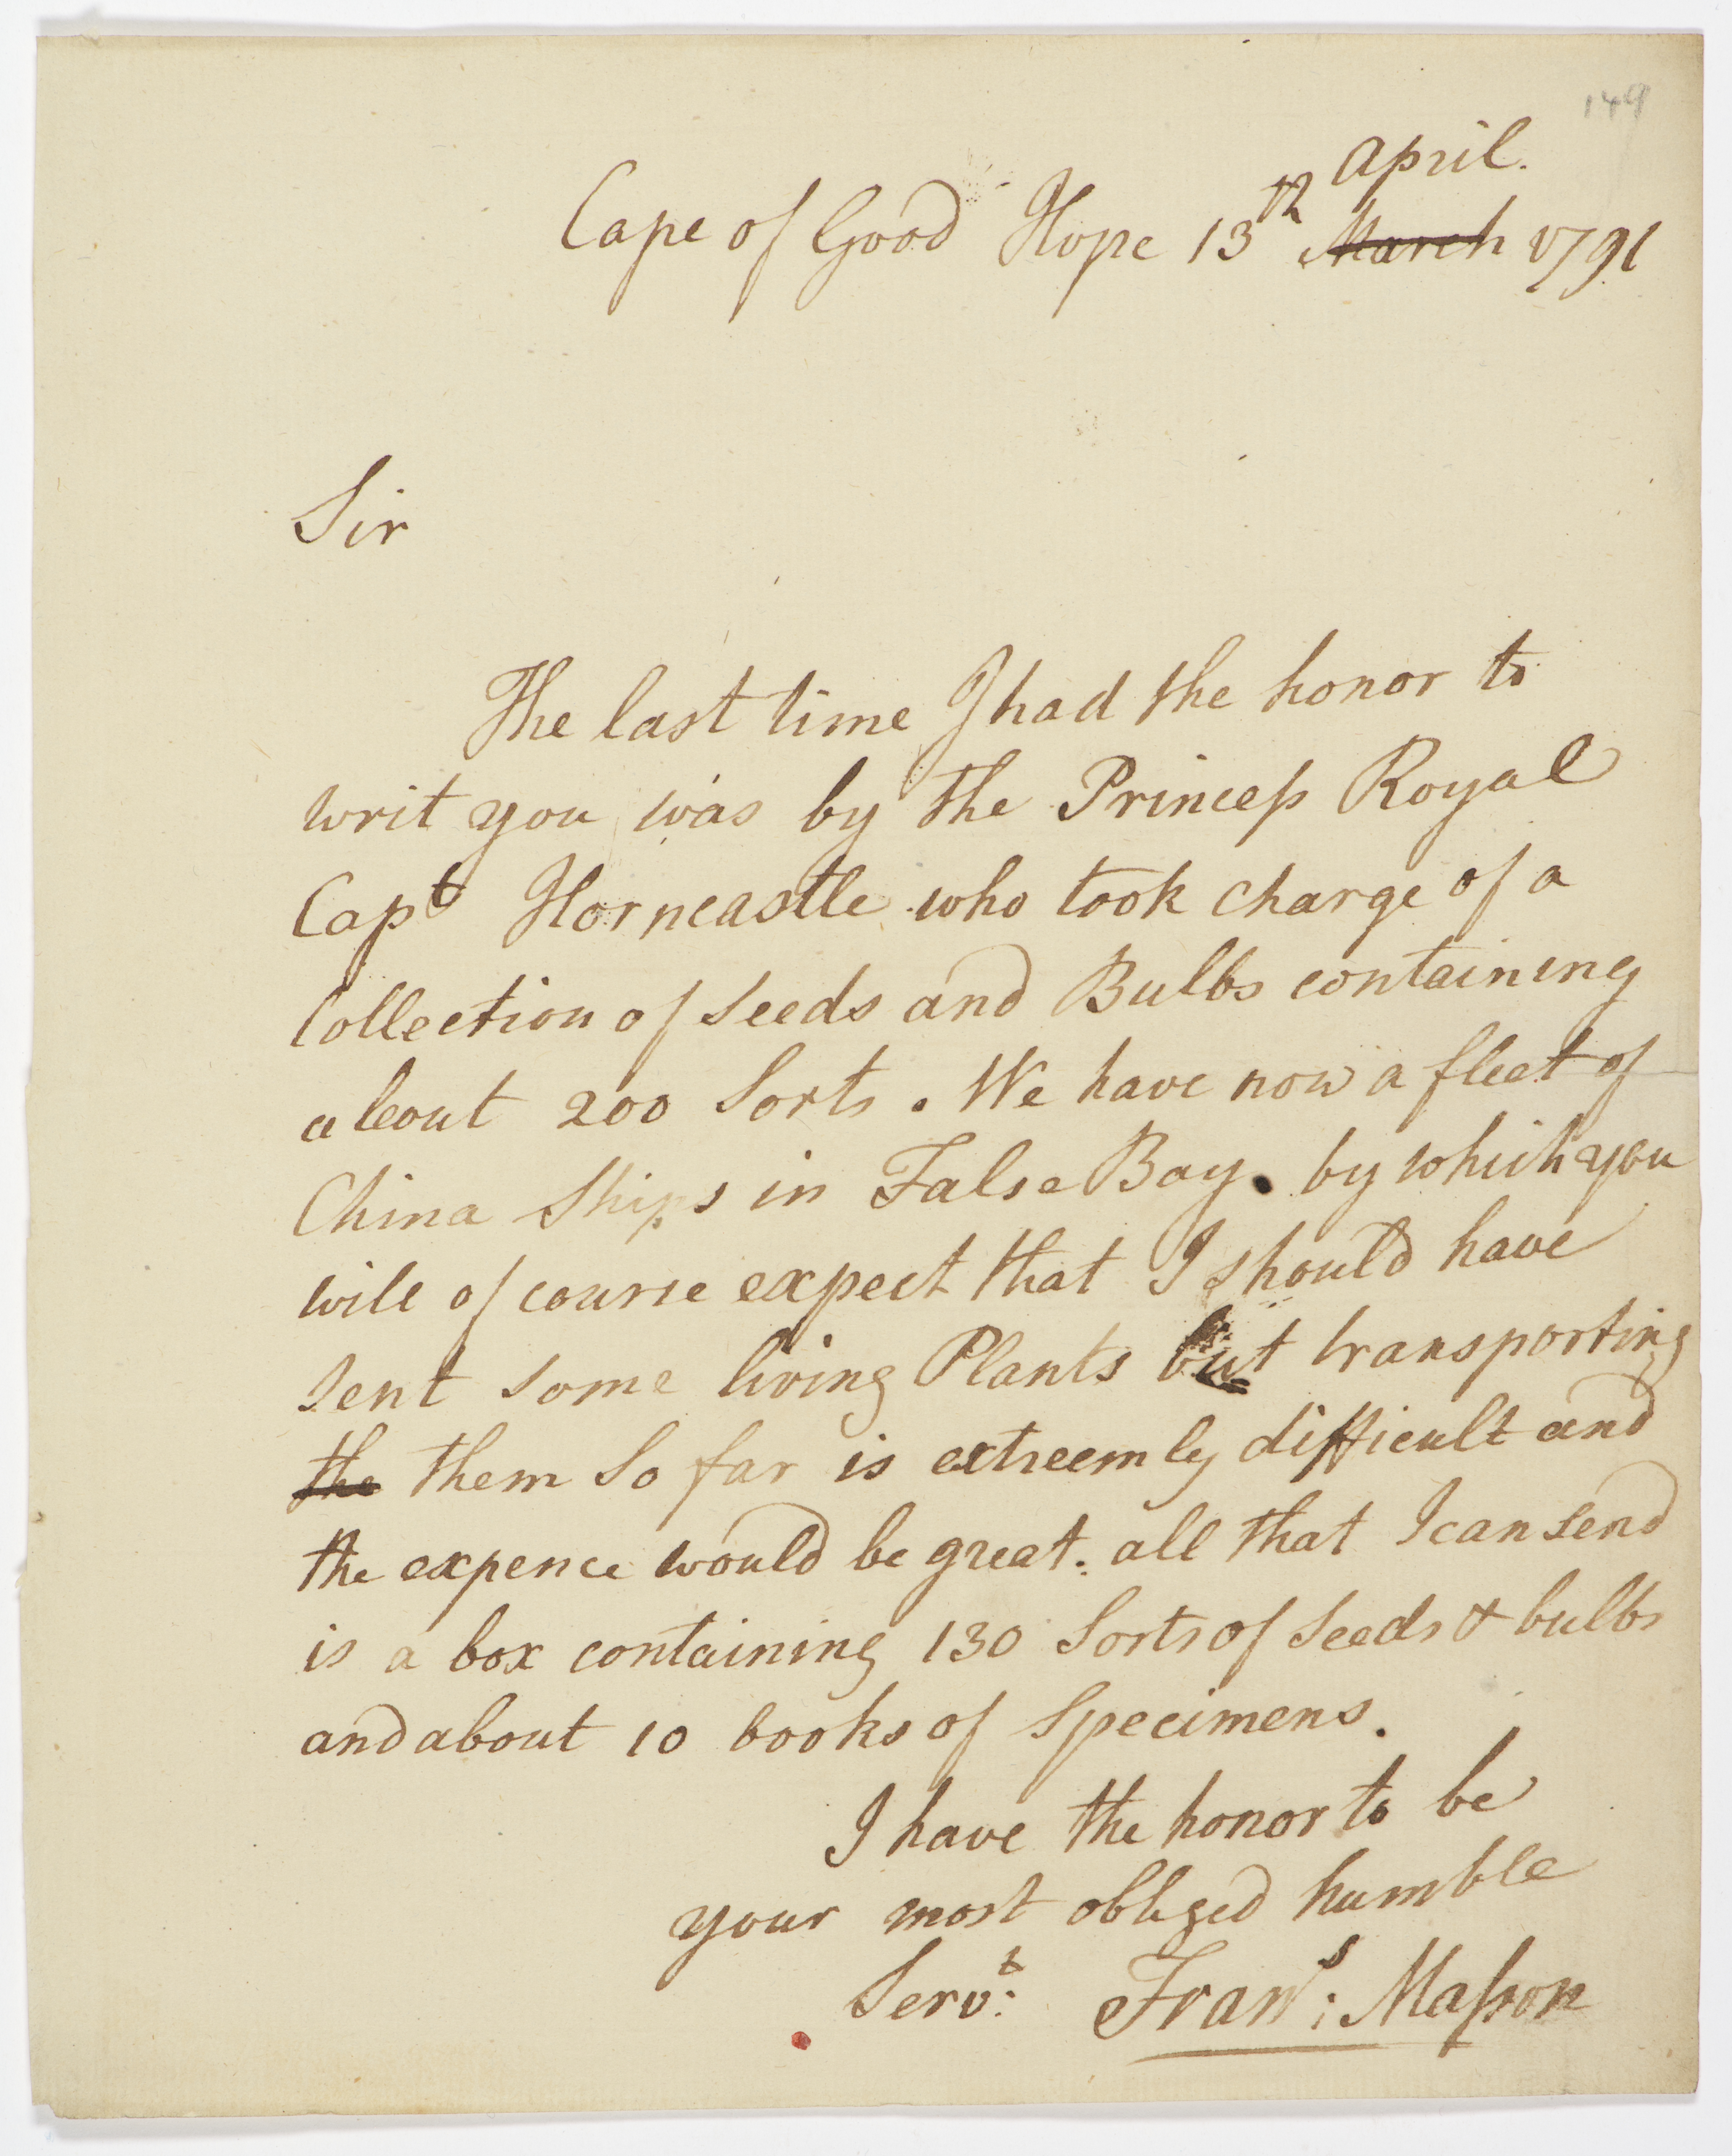 149
April.
Cape of Good Hope 13th March 1791
Sir
The last time I had the honor to
writ you was by the Princeſs Royal
Capt Horncastle who took charge of a
Collection of Seeds and Bulbs containing
about 200 Sorts. We have now a fleet of
China Ships in False Bay. by which you
will of course expect that I should have
sent some living Plants but transporting
the them So far is extreemly difficult and
the expence would be great. all that I can send
is a box containing 130 Sorts of Seeds & bulbs
and about 10 books of Specimens.
I have the honor to be
your most obliged humble
Servt: Frans: Maſson